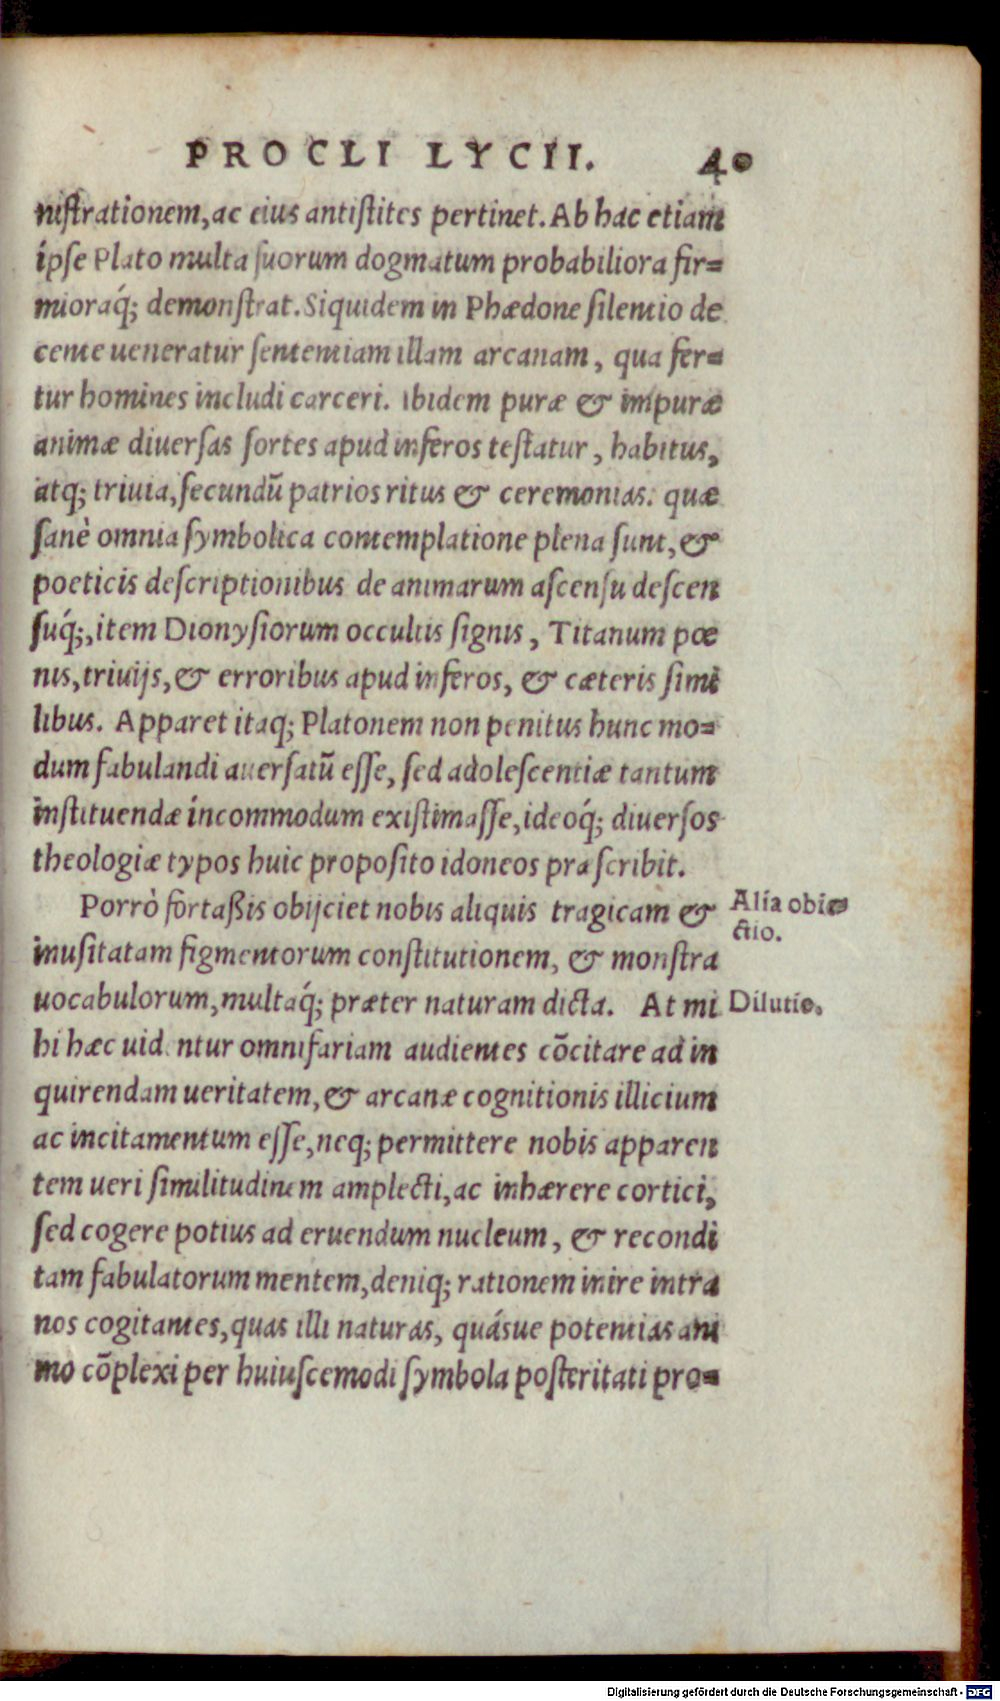 PROCLI LYCII. 40
nistrationem, ac eius antistites pertinet. Ab hac etiam
ipse Plato multa suorum dogmatum probabiliora fir=
mioraq́; demonstrat. Siquidem in Phædone silentio de
cente ueneratur sententiam illam arcanam, qua fer=
tur homines includi carceri. Ibidem puræ & impuræ
animæ diuersas sortes apud inferos testatur, habitus,
atq; triuia, secundũ patrios ritus & ceremonias. quæ
sanè omnia symbolica contemplatione plena sunt, &
poeticis descriptionibus de animarum ascensu descen
suq́;, item Dionysiorum occultis signis, Titanum pœ
nis, triuijs, & erroribus apud inferos, & cæteris simi
libus. Apparet itaq; Platonem non penitus hunc mo=
dum fabulandi auersatũ esse, sed adolescentiæ tantum
instituendæ incommodum existimasse, ideoq́; diuersos
theologiæ typos huic proposito idoneos præscribit.
Porrò fortaßis obijciet nobis aliquis tragicam &
Alia obie=
ctio.
inusitatam figmentorum constitutionem, & monstra
uocabulorum, multaq́; præter naturam dicta. At mi
Dilutio.
hi hæc uidentur omnifariam audientes cõcitare ad in
quirendam ueritatem, & arcanæ cognitionis illicium
ac incitamentum esse, neq; permittere nobis apparen
tem ueri similitudinem amplecti, ac inhærere cortici,
sed cogere potius ad eruendum nucleum, & recondi
tam fabulatorum mentem, deniq; rationem inire intra
nos cogitantes, quas illi naturas, quásue potentias ani
mo cõplexi per huiuscemodi symbola posteritati pro=
Digitalisierung gefördert durch die Deutsche Forschungsgemeinschaft - DFG